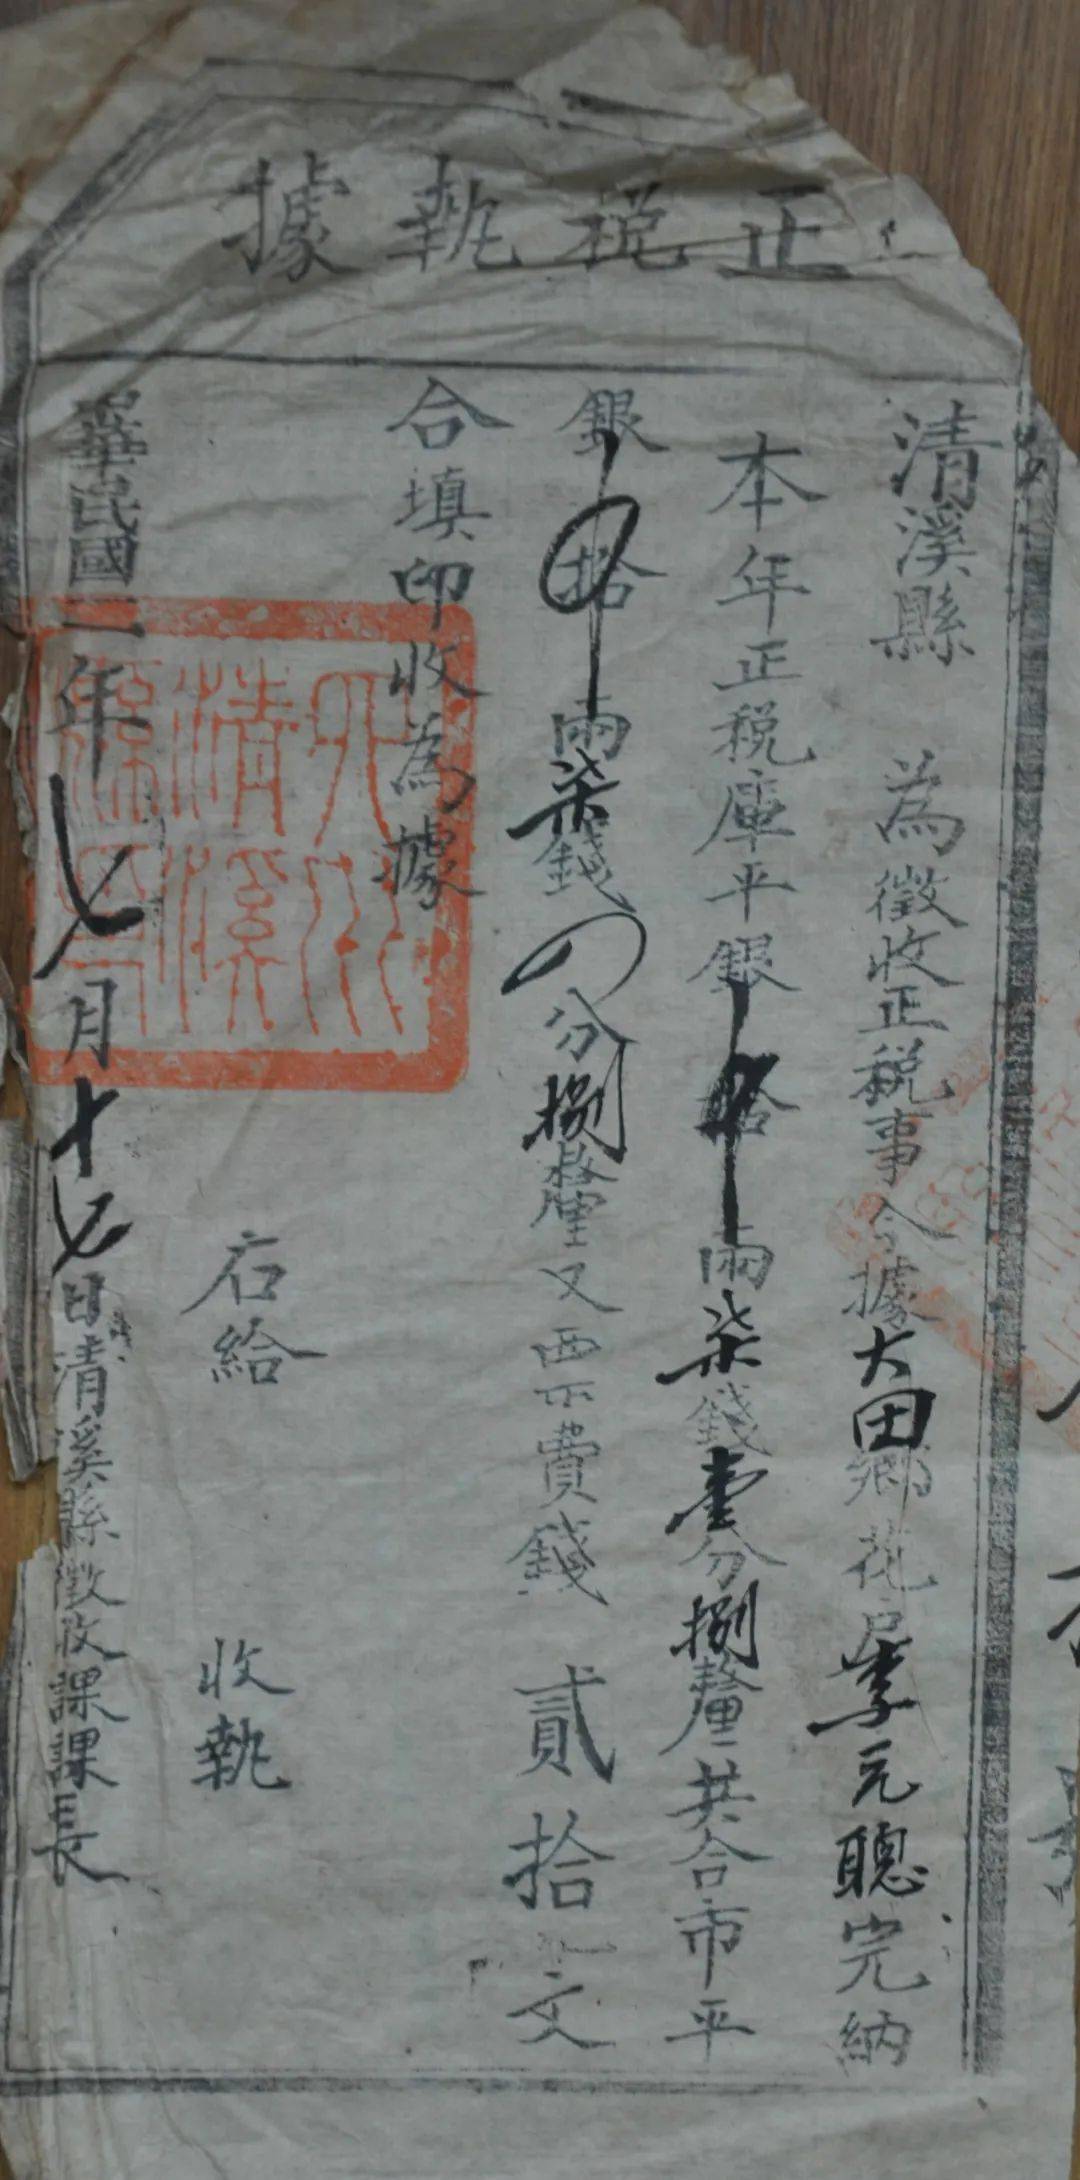 正税執據
清溪縣 為徵收正税事今據大田鄉花户李元聰完納
本年正税庫平銀拾兩柒錢壹分捌釐共合市平
銀拾兩柒錢分捌釐又西示費錢貳拾文
合填印收為據
右給 收執
華民國二年七月十七日清溪縣徵收課課長
四川
清溪
縣印